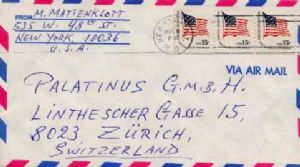 FROM M. MATTENKLOTT
535 W. 48TH ST.
NEW YORK 10036
U.S.A.
USA 15c USA 15c USA 15c
VIA AIR MAIL
PALATINUS G.M.B.H.
LINTHESCHER GASSE 15,
8023 ZÜRICH,
SWITZERLAND